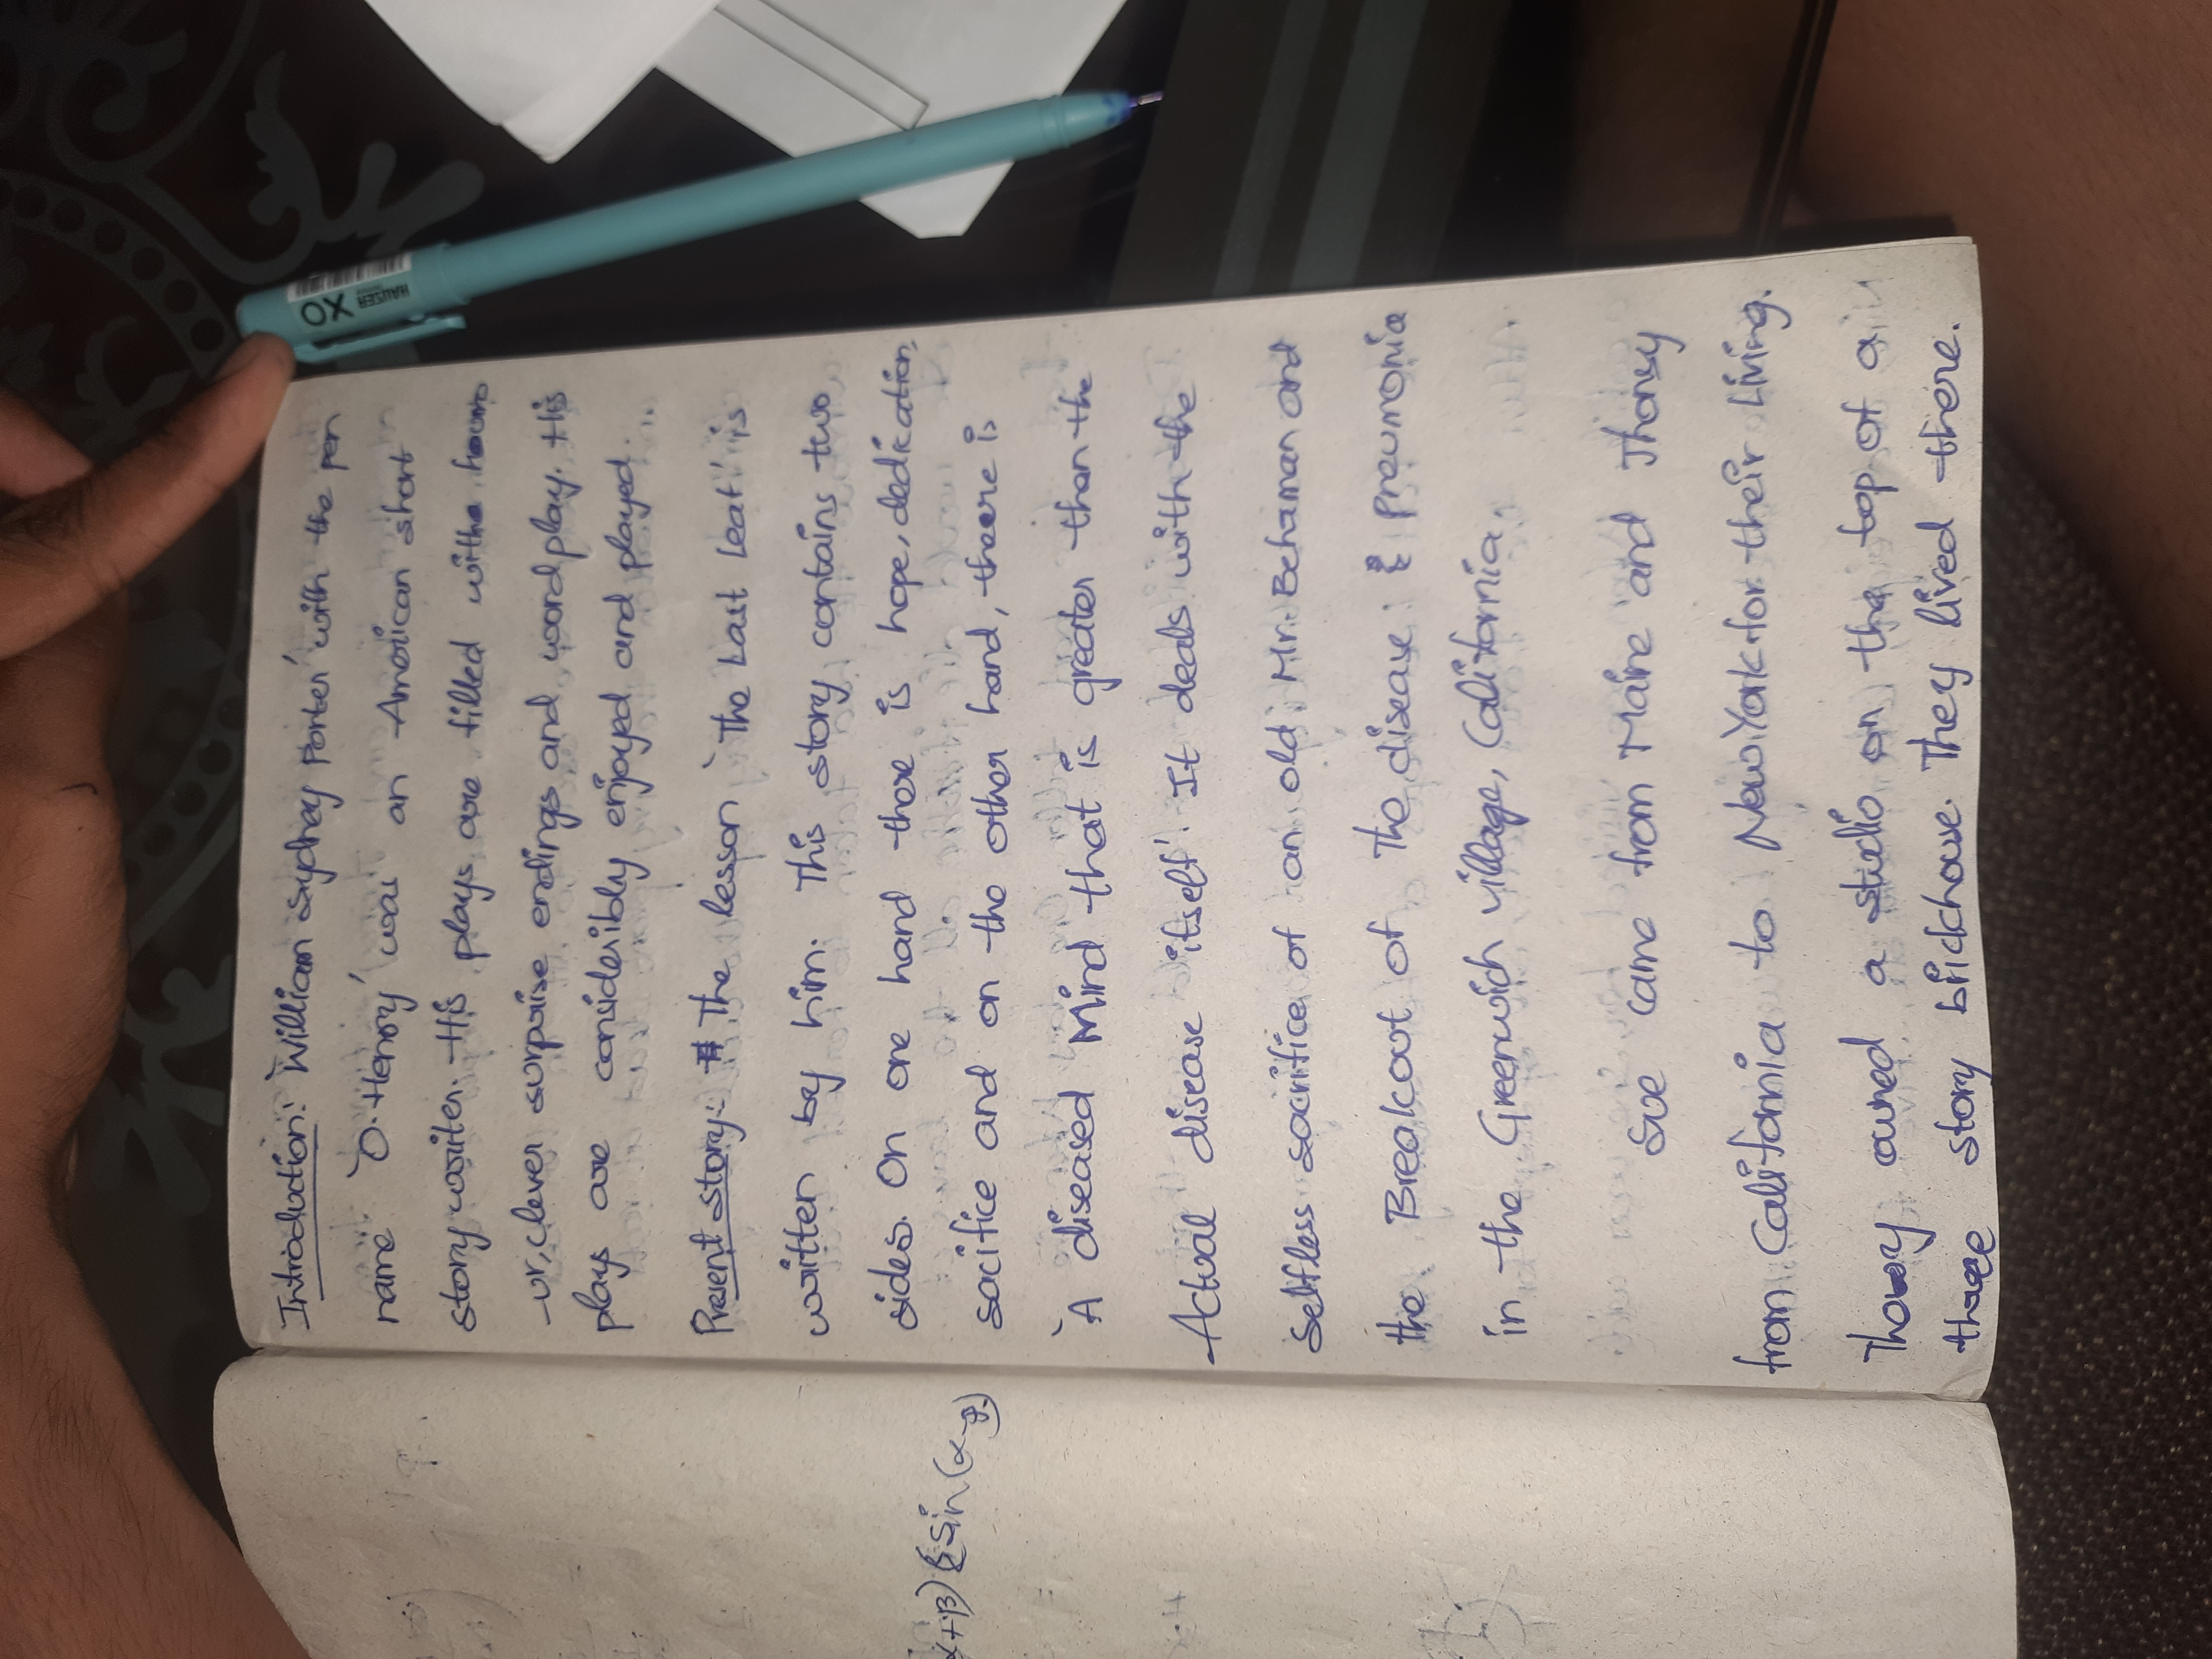 Introduction:- 'William Sydney Porter' with the pen
name 'O-Henry' was an American short
story writer. His plays are filled withe houmo
-ur, clever surpsise endings and word play. His
plays are consideribly enjoyed and played.
Present story:- The lesson 'The Last Leaf' is
written by him. This story contains two
sides. On one hand there is hope, dedication,
sacifice and on the other hand, there is
'A diseased Mind that is greater than the
Actual disease itself'. It deals with the
selfless sacrifice of an old Mr. Behaman and
the Breakout of The disease : Pneumonia
in the Greenwich village, California.
Sue came from Maine and Jhonsy
from California to New York for their living.
They owned a studio on the top of a
three story brickhouse. They lived there.
α+β) (sin(α-β)
HAUSER
XO